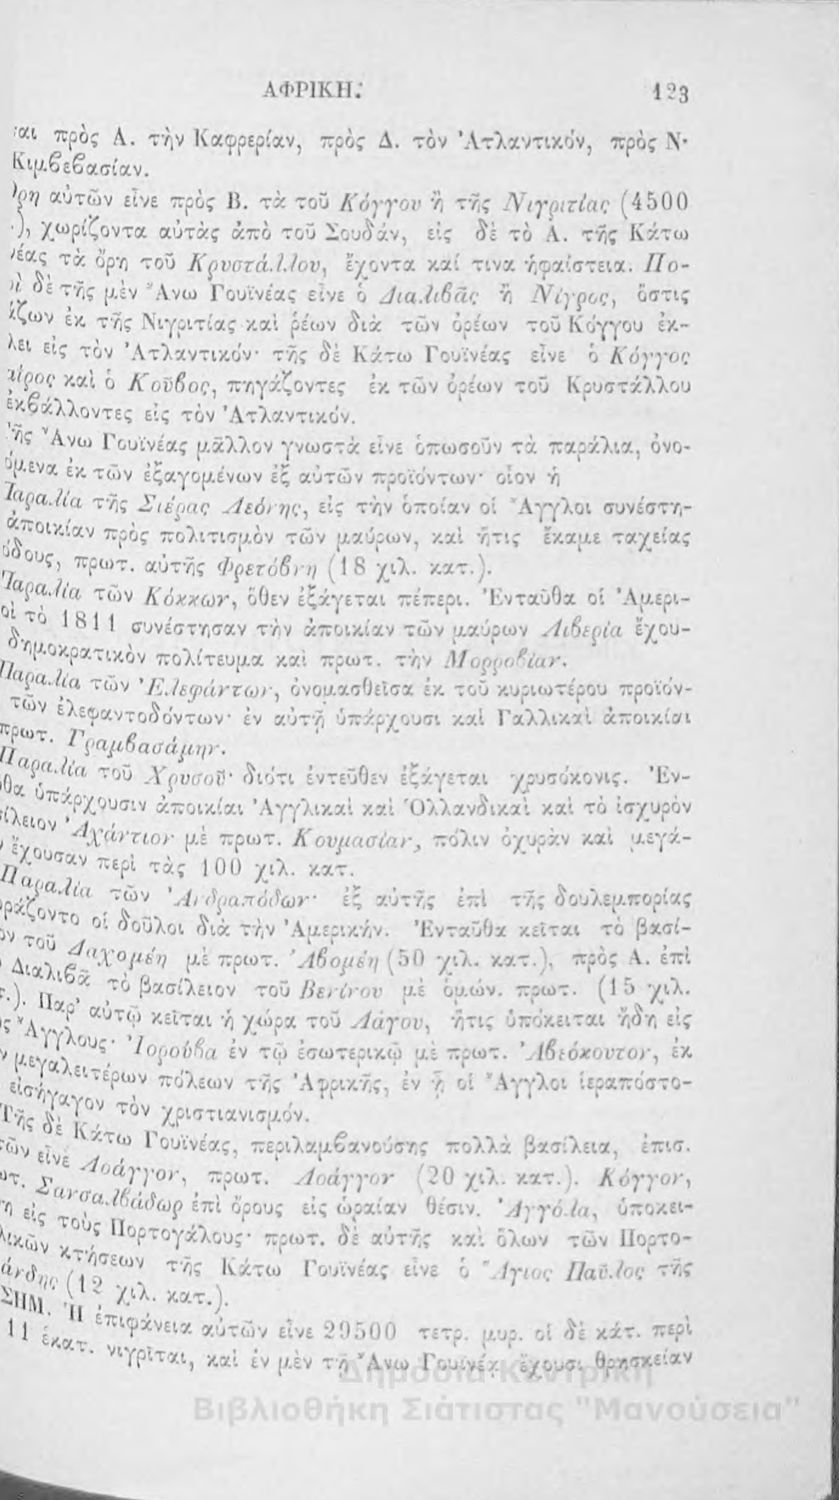 ΑΦΡΙΚΗ. 123
ται πρὸς Α. τὴν Καφρερίαν, πρὸς Δ. τὸν Ἀτλαντικόν, πρὸς Ν·
Κιμβεβασίαν.
ρη αὐτῶν εἶνε πρὸς Β. τὰ τοῦ Κόγγου ἢ τῆς Νιγριτίας (4500
.), χωρίζοντα αὐτὰς ἀπὸ τοῦ Σουδάν, εἰς δὲ τὸ Α. τῆς Κάτω
νέας τὰ ὄρη τοῦ Κρυστάλλου, ἔχοντα καί τινα ἡφαίστεια. Πο-
οὶ δὲ τῆς μὲν Ἄνω Γουϊνέας εἶνε ὁ Διαλιβᾶς ἢ Νίγρος, ὅστις
άζων ἐκ τῆς Νιγριτίας καὶ ῥέων διὰ τῶν ὀρέων τοῦ Κόγγου ἐκ-
λει εἰς τὸν Ἀτλαντικόν· τῆς δὲ Κάτω Γουϊνέας εἶνε ὁ Κόγγος
αΐρος καὶ ὁ Κοῦβος, πηγάζοντες ἐκ τῶν ὀρέων τοῦ Κρυστάλλου
ἐκβάλλοντες εἰς τὸν Ἀτλαντικόν.
τῆς Ἄνω Γουϊνέας μᾶλλον γνωστὰ εἶνε ὁπωσοῦν τὰ παράλια, ὀνο-
όμενα ἐκ τῶν ἐξαγομένων ἐξ αὐτῶν προϊόντων· οἷον ἡ
Παραλία τῆς Σιέρας Λεόνης, εἰς τὴν ὁποίαν οἱ Ἄγγλοι συνέστη-
ἀποικίαν πρὸς πολιτισμὸν τῶν μαύρων, καὶ ἥτις ἔκαμε ταχείας
όδους, πρωτ. αὐτῆς Φρετόβνη (18 χιλ. κατ.).
Παραλία τῶν Κόκκων, ὅθεν ἐξάγεται πέπερι. Ἐνταῦθα οἱ Ἀμερι-
οὶ τὸ 1811 συνέστησαν τὴν ἀποικίαν τῶν μαύρων Λιβερία ἔχου-
δημοκρατικὸν πολίτευμα καὶ πρωτ. τὴν Μορροβίαν.
Παραλία τῶν Ἐλεφάντων, ὀνομασθεῖσα ἐκ τοῦ κυριωτέρου προϊόν-
τῶν ἐλεφαντοδόντων· ἐν αὐτῇ ὑπάρχουσι καὶ Γαλλικαὶ ἀποικίαι
πρωτ. Γραμβασάμην.
Παραλία τοῦ Χρυσοῦ· διότι ἐντεῦθεν ἐξάγεται χρυσόκονις. Ἐν-
θα ὑπάρχουσιν ἀποικίαι Ἀγγλικαὶ καὶ Ὁλλανδικαὶ καὶ τὸ ἰσχυρὸν
ίλειον Ἀχάντιον μὲ πρωτ. Κουμασίαν, πόλιν ὀχυρὰν καὶ μεγά-
ἔχουσαν περὶ τὰς 100 χιλ. κατ.
Παραλία τῶν Ἀνδραπόδων· ἐξ αὐτῆς ἐπὶ τῆς δουλεμπορίας
ράζοντο οἱ δοῦλοι διὰ τὴν Ἀμερικήν. Ἐνταῦθα κεῖται τὸ βασί-
ον τοῦ Δαχομέη μὲ πρωτ. Ἀβομέη (50 χιλ. κατ.), πρὸς Α. ἐπὶ
Διαλιβᾶ τὸ βασίλειον τοῦ Βενίνου μὲ ὁμών. πρωτ. (15 χιλ.
τ.). Παρ' αὐτῷ κεῖται ἡ χώρα τοῦ Λάγου, ἥτις ὑπόκειται ἤδη εἰς
ς Ἄγγλους· Ἰορούβα ἐν τῷ ἐσωτερικῷ μὲ πρωτ. Ἀβεόκουτον, ἐκ
ν μεγαλειτέρων πόλεων τῆς Ἀφρικῆς, ἐν ᾗ οἱ Ἄγγλοι ἱεραπόστο-
εἰσήγαγον τὸν χριστιανισμόν.
Τῆς δὲ Κάτω Γουϊνέας, περιλαμβανούσης πολλὰ βασίλεια, ἐπισ.
τῶν εἶνε Λοάγγον, πρωτ. Λοάγγον (20 χιλ. κατ.). Κόγγον,
ωτ. Σανσαλβάδωρ ἐπὶ ὄρους εἰς ὡραίαν θέσιν. Ἀγγόλα, ὑποκει-
νη εἰς τοὺς Πορτογάλους· πρωτ. δὲ αὐτῆς καὶ ὅλων τῶν Πορτο-
λικῶν κτήσεων τῆς Κάτω Γουϊνέας εἶνε ὁ Ἅγιος Παῦλος τῆς
άνδης (12 χιλ. κατ.).
ΣΗΜ. Ἡ ἐπιφάνεια αὐτῶν εἶνε 29500 τετρ. μυρ. οἱ δὲ κάτ. περὶ
11 ἑκατ. νιγρῖται, καὶ ἐν μὲν τῇ Ἄνω Γουϊνέᾳ ἔχουσι θρησκείαν
Δημόσια Κεντρική
Βιβλιοθήκη Σιάτιστας "Μανούσεια"